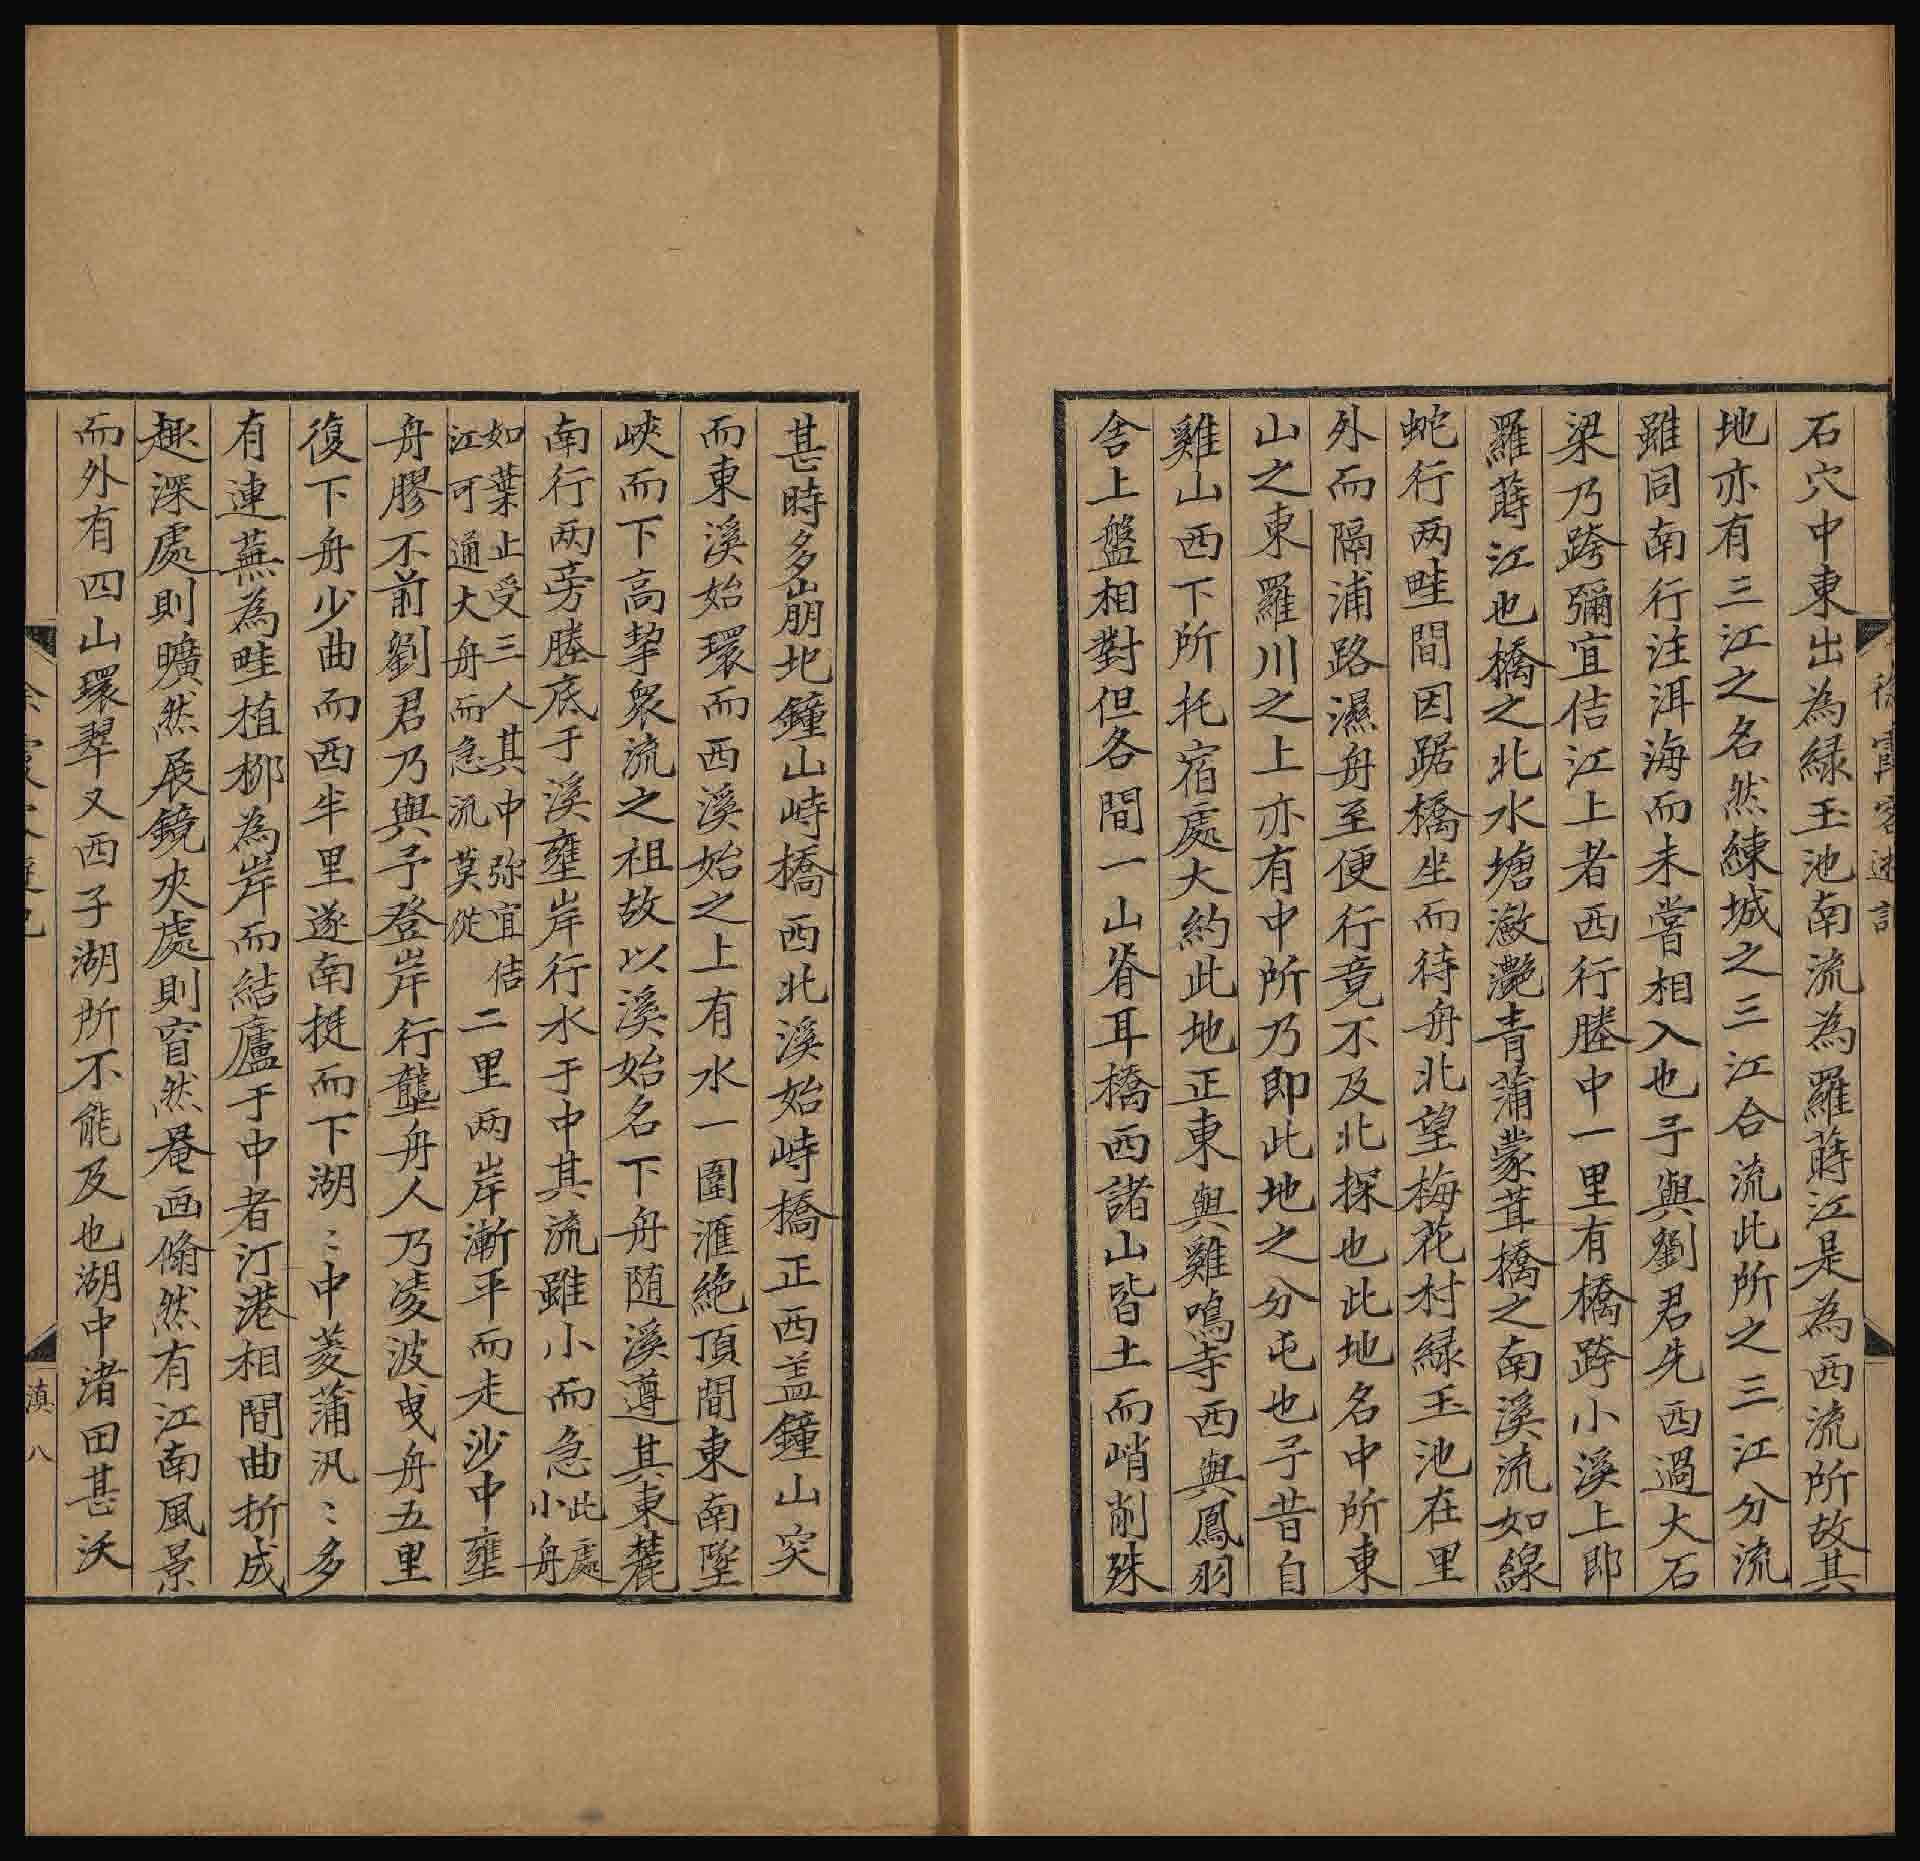 徐霞客遊記
石穴中東出為綠玉池南流為羅蒔江是為西流所故其
地亦有三江之名然練城之三江合流此所之三江分流
雖同南行注洱海而未嘗相入也予與劉君先西過大石
梁乃跨彌宜佶江上者西行塍中一里有橋跨小溪上即
羅蒔江也橋之北水塘瀲灧青蒲蒙茸橋之南溪流如線
蛇行两畦間因踞橋坐而待舟北望梅花村綠玉池在里
外而隔浦路濕舟至便行竟不及北探也此地名中所東
山之東羅川之上亦有中所乃即此地之分屯也予昔自
雞山西下所托宿處大約此地正東與雞鳴寺西與鳳羽
舍上盤相對但各間一山脊耳橋西諸山皆土而峭削殊
甚時多崩圮鐘山峙橋西北溪始峙橋正西盖鐘山突
而東溪始環而西溪始之上有水一圍滙絶頂間東南墜
峽而下高挈衆流之祖故以溪始名下舟随溪遵其東麓
南行两旁塍底于溪壅岸行水于中其流雖小而急此處
小舟
如葉止受三人其中弥宜佶
江可通大舟而急流莫從
二里两岸漸平而走沙中壅
舟膠不前劉君乃與予登岸行壟舟人乃凌波曳舟五里
復下舟少曲而西半里遂南挺而下湖〻中菱蒲汎〻多
有連蕪為畦植栁為岸而結廬于中者汀港相間曲折成
趣深處則曠然展鏡夾處則窅然罨画翛然有江南風景
而外有四山環翠又西子湖所不能及也湖中渚田甚沃
滇八